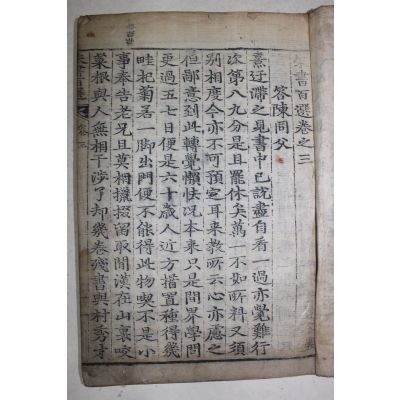 朱書百選卷之三
答陳同父
熹迂滯之見書中已說盡自看一過亦覺難行
次第八九分是且罷休矣萬一不如所料又須
別相度今亦不可預定耳來教所云心亦慮之
但鄙意到此轉覺懶怯況本來只是間界學問
更過五七日便是六十歲人近方措置種得幾
畦杞菊若一脚出門便不能得此物喫不是小
事奉告老兄且莫相攛掇留取閒漢在山裏咬
菜根與人無相干涉了却幾卷殘書與村秀才